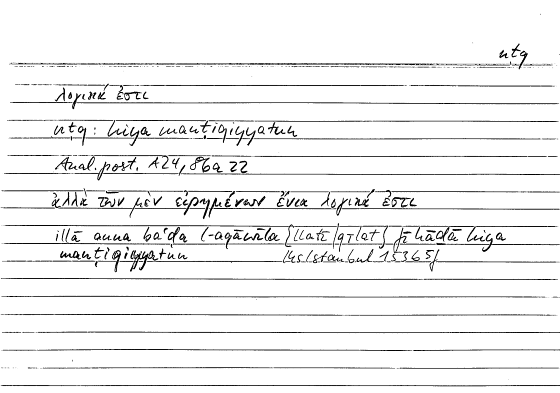 nṭq
λογικά ἐστι
nṭq: hiya manṭiqiyyatun
Anal. post. A24, 86a22
ἀλλὰ τῶν μὲν εἰρημένων ἔνια λογικά ἐστι
illā anna baʿḍa l-aqāwīla {llatī/qīlat} fī hāḏā hiya
manṭiqiyyatun